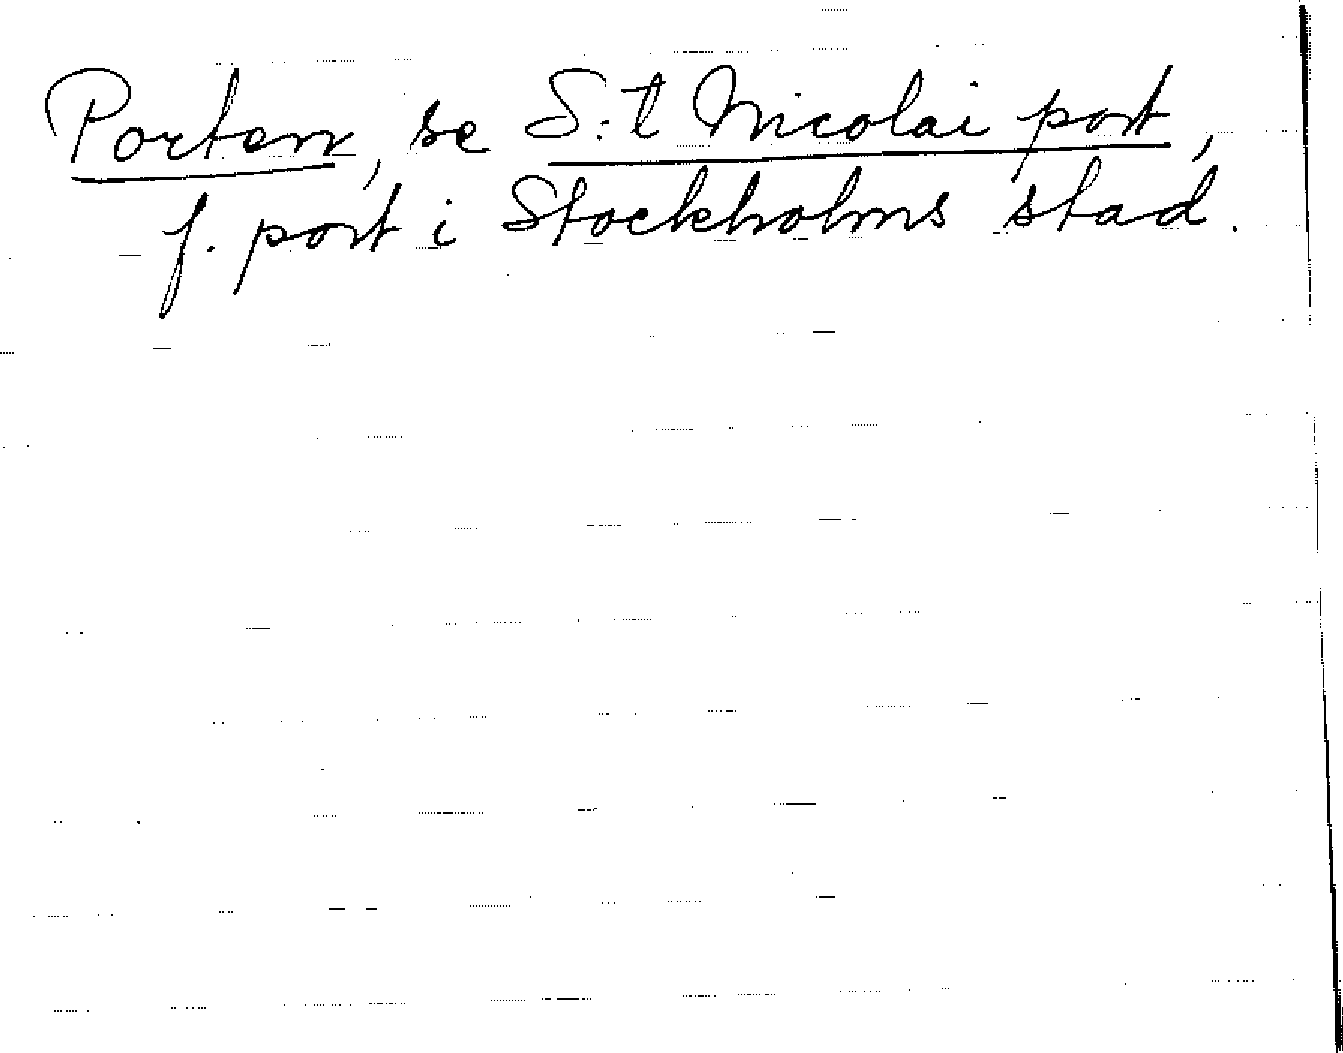 Porten, se S:t Nicolai port,
f. port i Stockholms stad.